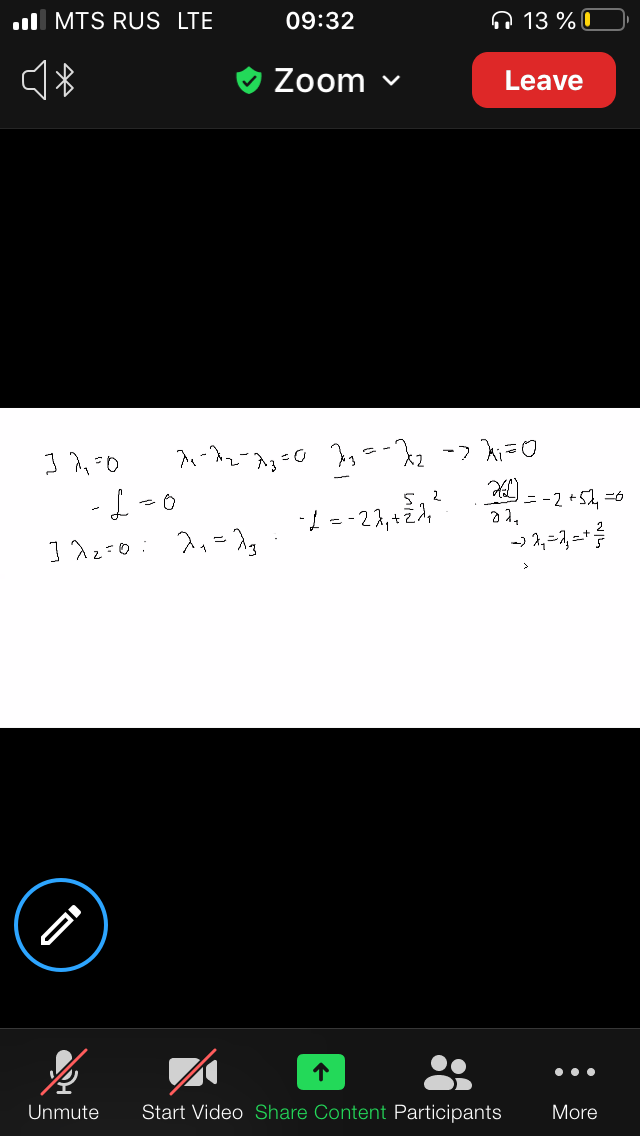 MTS RUS LTE 09:32 13 %
Zoom Leave
] λ₁=0 λ₁-λ₂-λ₃=0 λ₃=-λ₂ → λi=0
-L=0
] λ₂=0: λ₁=λ₃. -L=-2λ₁+5/2λ₁² = -2+5λ₁=0
→ λ₁=λ₃=+2/5
Unmute Start Video Share Content Participants More